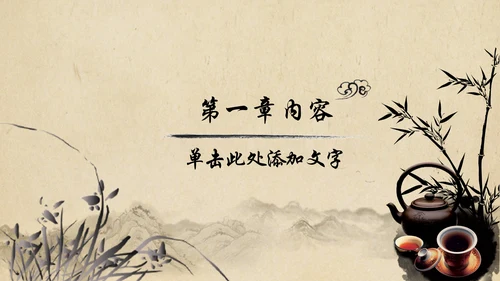 第一章内容
单击此处添加文字